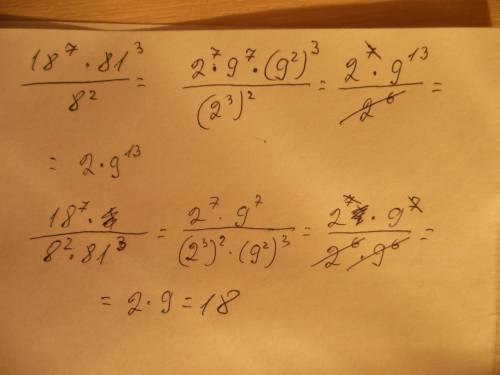 18⁷ · 81³ / 8² = 2⁷ · 9⁷ · (9²)³ / (2³)² = 2⁷ · 9¹³ / 2⁶ =
= 2 · 9¹³
18⁷ · / 8² · 81³ = 2⁷ · 9⁷ / (2³)² · (9²)³ = 2⁷ · 9⁷ / 2⁶ · 9⁶ =
= 2 · 9 = 18